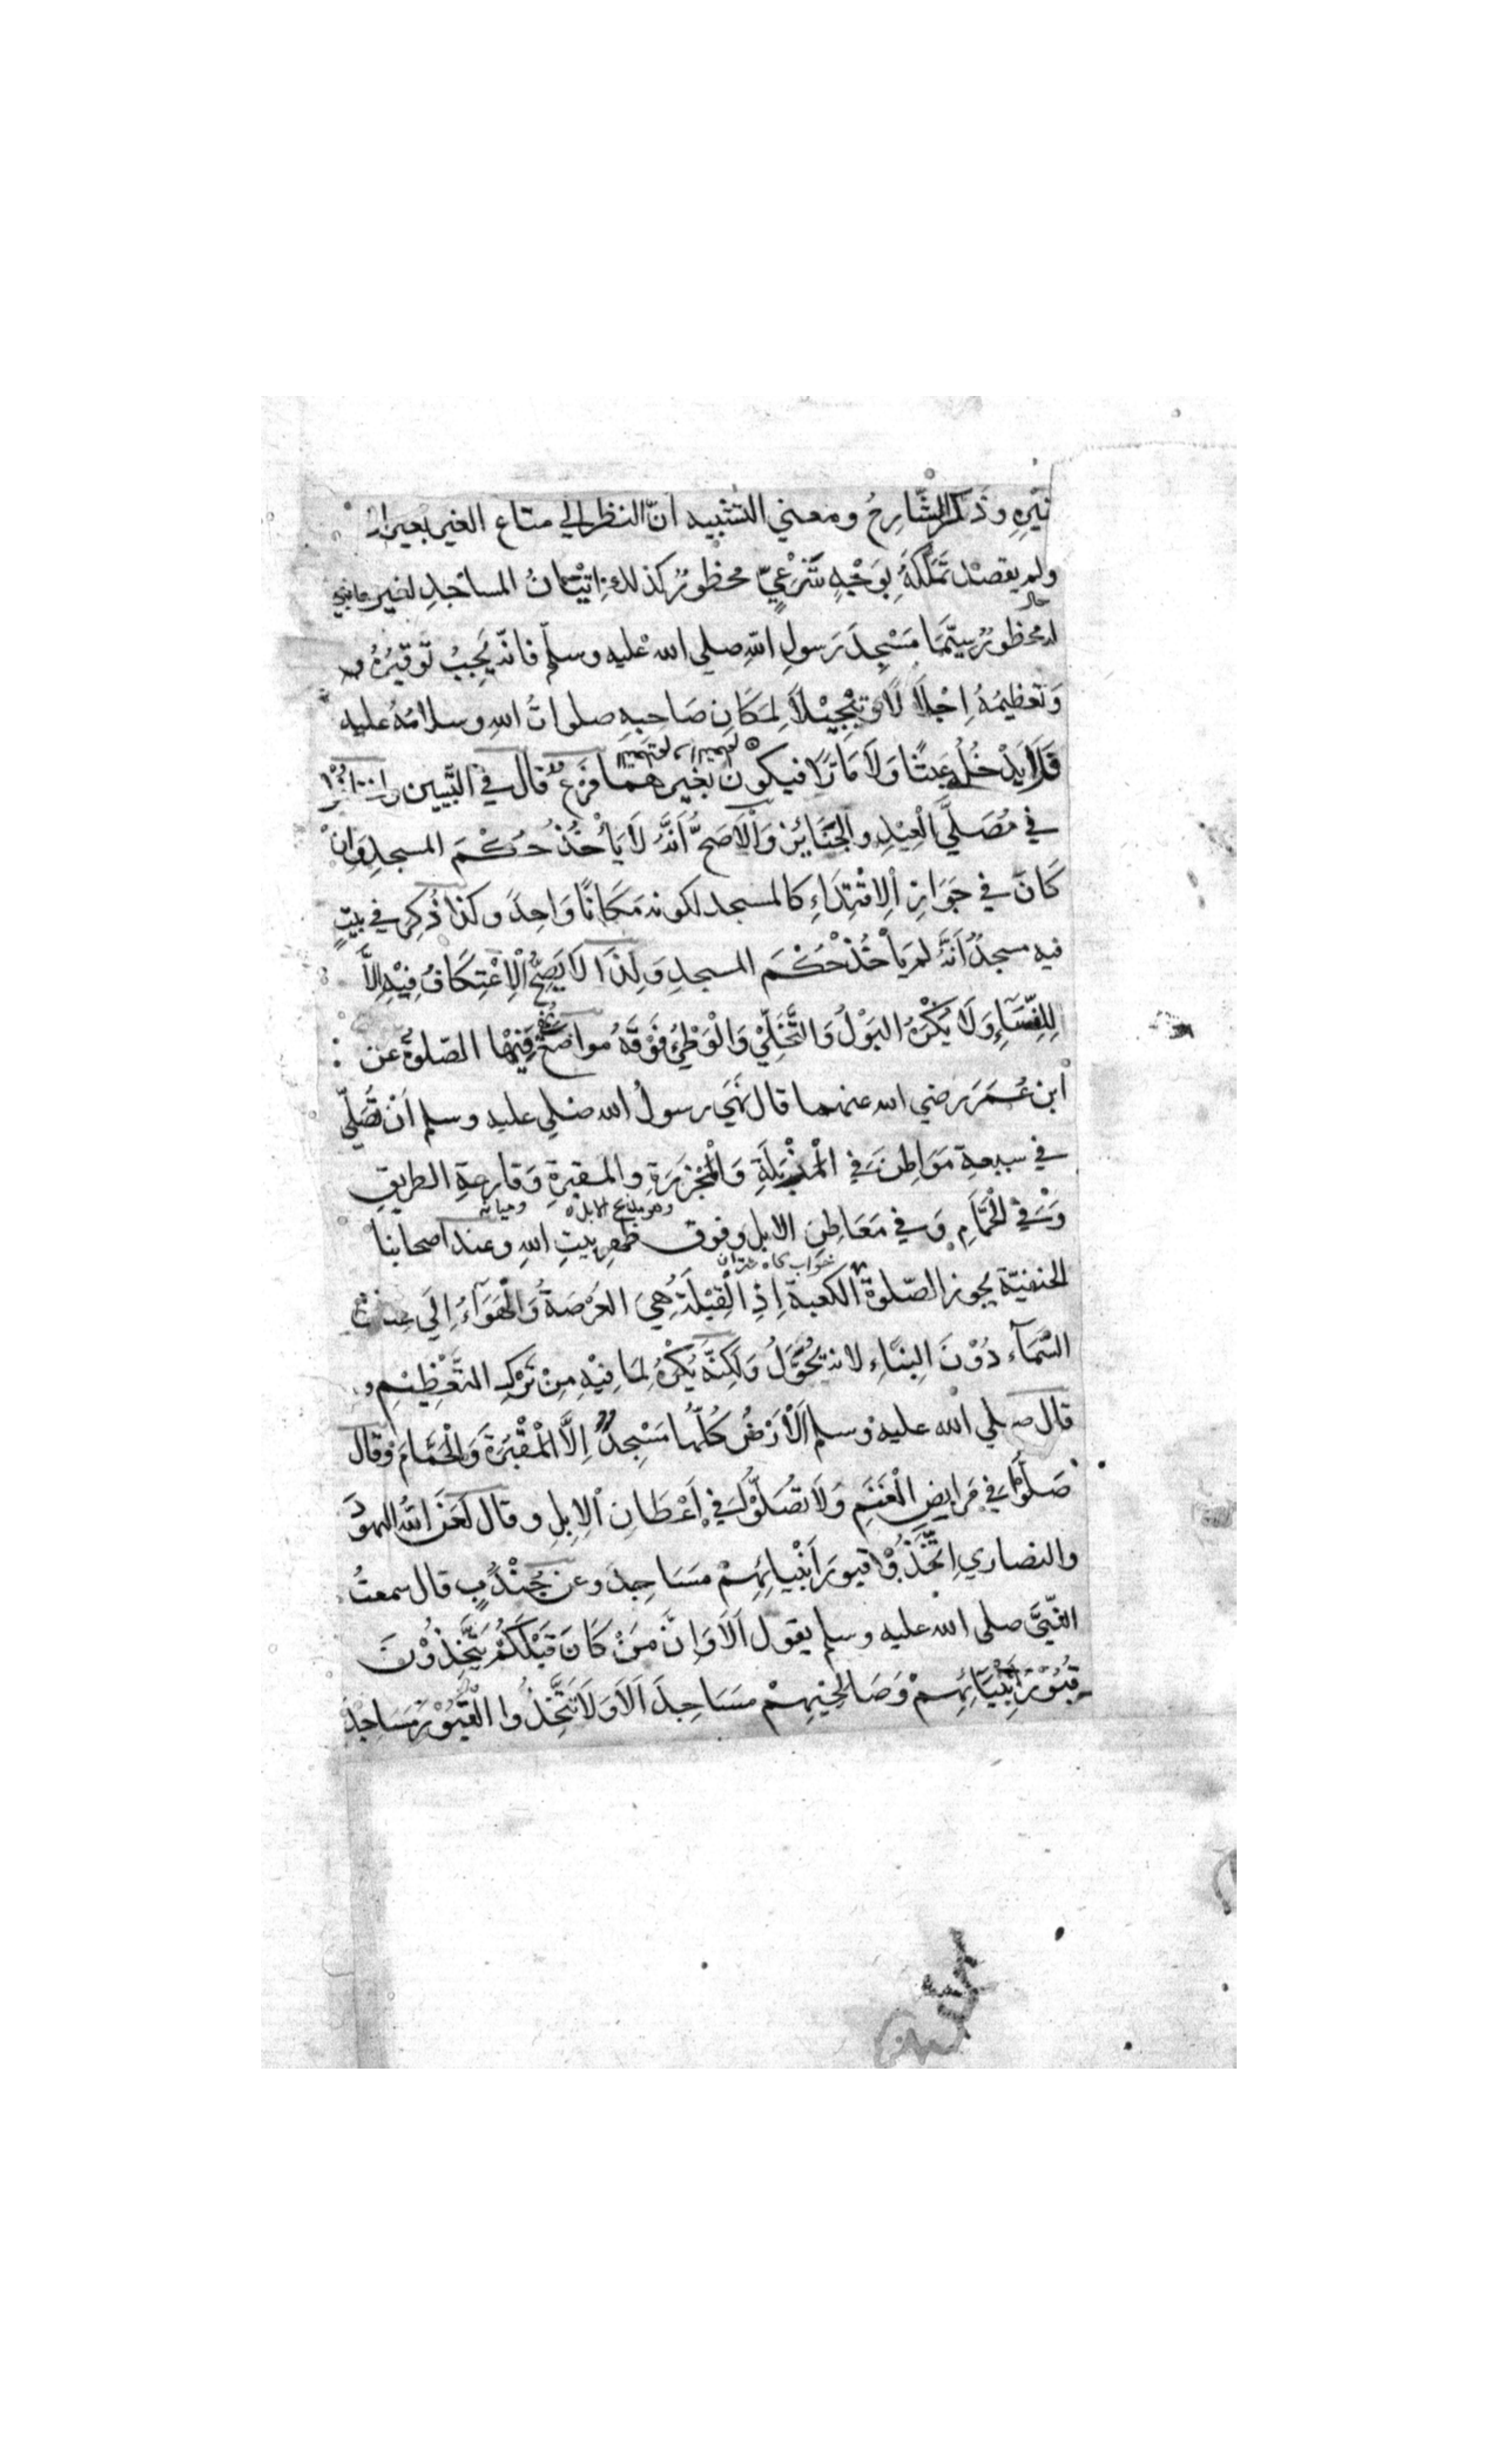 وَذَكَرَ الشَّارِحُ ومعني التشبيه انّ النظر الي متاع الغير بغير
ولم يقصد تَمَلُّكَهُ بِوَجْهٍ شَرْعِيّ محظورٌ كذلك اِتْيَانُ المساجدِ لغير ما بُني
له محظورٌ سِيَّمَا مَسْجِدَ رَسولِ اللهِ صلي الله عليه وسلّم فانّه يَجِبُ تَوقيرُهُ
وَتعظيمُهُ اِجْلَالًا وَتَبْجِيْلًا لِمَكَانِ صَاحبِهِ صلواتُ اللهِ وسلامُهُ عليه
فَلَا يَدْخُلُ عَبَثًا وَلَا مَارًّا فيكونُ بغيرهما فَرْعٌ قال في التَّبيين
في مُصَلَّي الْعِيْدِ والْجَنَائِزِ وَالْاَصَحُّ اَنَّهُ لَا يَأْخُذُ حُكْمَ المسجدِ وَاِنْ
كَانَ في جَوَازِ الِاقْتِدَاءِ كالمسجد لكونه مَكَانًا وَاحِدَ وكذا ذُكِرَ في بيتٍ
فيه مسجدٌ اَنَّهُ لم يَأْخُذْ حُكْمَ المسجدِ وَلِذَا لَا يَصِحُّ الْاِعْتِكَافُ فِيْهِ اِلَّا
لِلنِّسَاءِ وَلَا يُكْرَهُ البَوْلُ وَالتَّخَلِّيْ وَالْوَطْيُ فَوْقَهُ مواضعُ نُهِيَ فيها الصّلوةُ عن
ابن عُمَرَ رضي الله عنهما قال نَهَي رسولُ الله صلي عليه وسلم اَنْ نُصَلِّيَ
في سبعة مَوَاطِنَ في الْمَزْبَلَةِ وَالْمَجْزَرَةِ والمقبرةِ وَقارعةِ الطريقِ
وَفي الْحَمَّامِ وَفي مَعَاطِنِ الابلِ وفوق ظهرِ بيتِ اللهِ وعند اصحابنا
الحنفيّة يجوز الصّلوة الكعبة اِذِ الْقِبْلَةُ هِيَ العَرْصَةُ وَالْهَوَآءُ اِلَي عِنَانِ
السَّمَآء دُوْنَ البِنَاءِ لانه يُحَوَّلُ وَلَكِنَّهُ يُكْرَهُ لِمَا فِيْهِ مِنْ تَرْكِ التَّعْظِيْمِ و
قال صلي الله عليه وسلم اَلْاَرْضُ كُلُّهَا مَسْجِدٌ اِلَّا الْمَقْبَرَةَ وَالْحَمَّامَ وقال
صَلُّوْا في مَرَابِضِ الْغَنَمِ وَلَا تُصَلُّوْا في اَعْطَانِ الْاِبِلِ وقال لَعَنَ اللهُ اليهودَ
والنصاري اِتَّخَذُوْا قبورَ اَنْبِيائِهِمْ مَسَاجِدَ وعن جُنْدُبٍ قال سمعتُ
النّبيَّ صلي الله عليه وسلم يقول اَلَا وَاِنَّ مَنْ كَانَ قَبْلَكُمْ يَتَّخِذُوْنَ
قُبُوْرَ اَنْبِيَائِهِمْ وَصَالِحِيْهِمْ مَسَاجِدَ اَلَا وَلَا تَتَّخِذُوا الْقُبُوْرَ مَسَاجِدَ